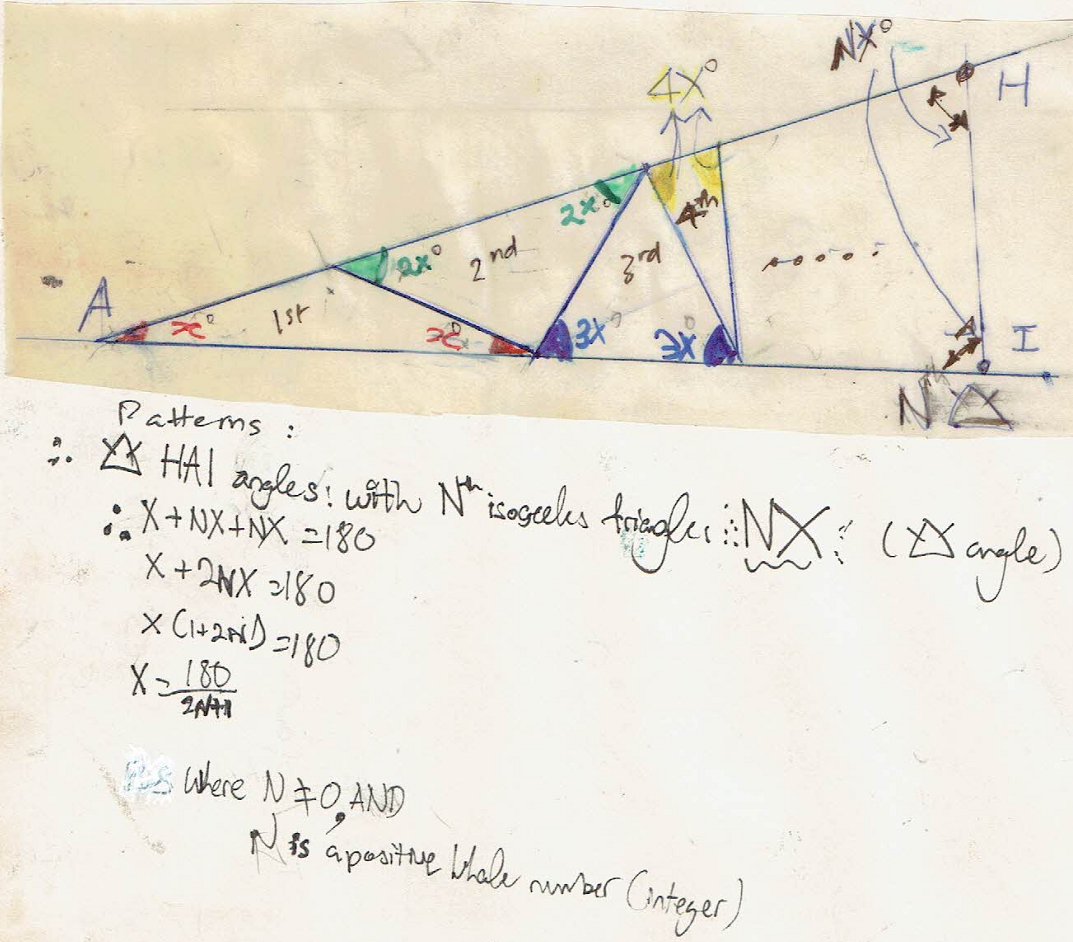 NX°
4X°
H
2x°
4th
2x°
2nd
3rd
.....
A
x°
1st
x°
3X°
3X°
I
Nth
Patterns:
∴ HAI angles: with Nth isosceles triangle: ∴ NX: ( angle)
∴ X+NX+NX=180
X+2NX=180
X(1+2N)=180
X=180
2N+1
Where N≠0, AND
N is a positive whole number (integer)